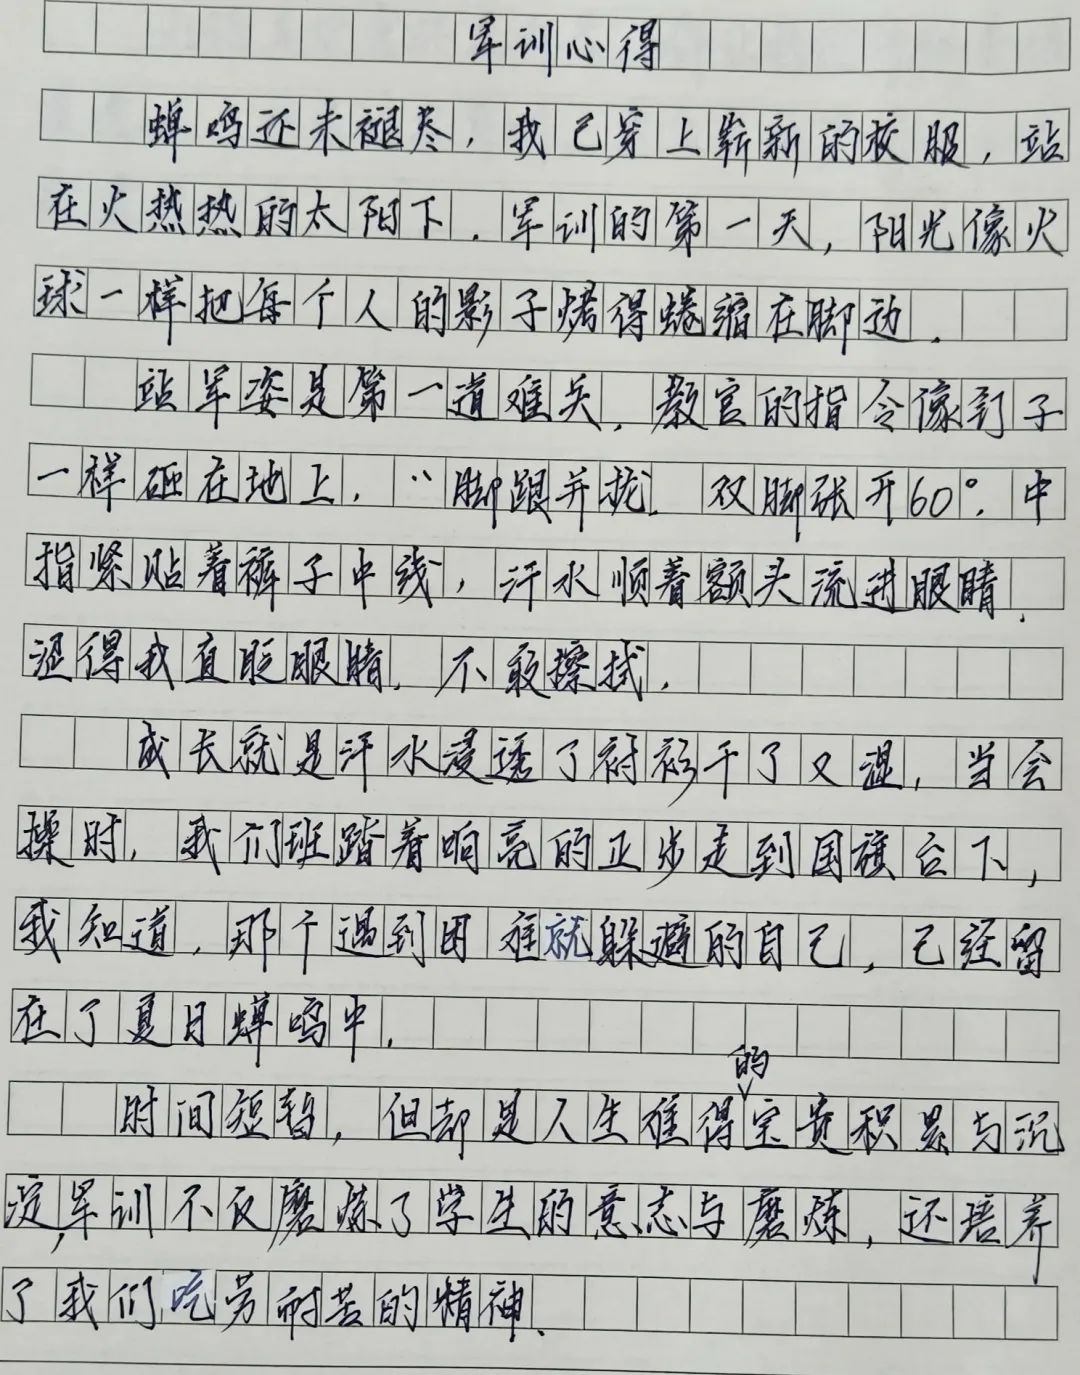 军训心得
蝉鸣还未褪尽，我已穿上崭新的校服，站
在火热热的太阳下．军训的第一天，阳光像火
球一样把每个人的影子烤得蜷缩在脚边．
站军姿是第一道难关．教官的指令像钉子
一样砸在地上，“脚跟并拢．双脚张开60°．中
指紧贴着裤子中线，汗水顺着额头流进眼睛．
涩得我直眨眼睛．不敢擦拭．
成长就是汗水浸透了衬衫干了又湿，当会
操时，我们班踏着响亮的正步走到国旗台下，
我知道，那个遇到困难就躲避的自己，已经留
在了夏日蝉鸣中．
时间短暂，但却是人生难得的宝贵积累与沉
淀，军训不仅磨炼了学生的意志与磨炼，还培养
了我们吃劳耐苦的精神．